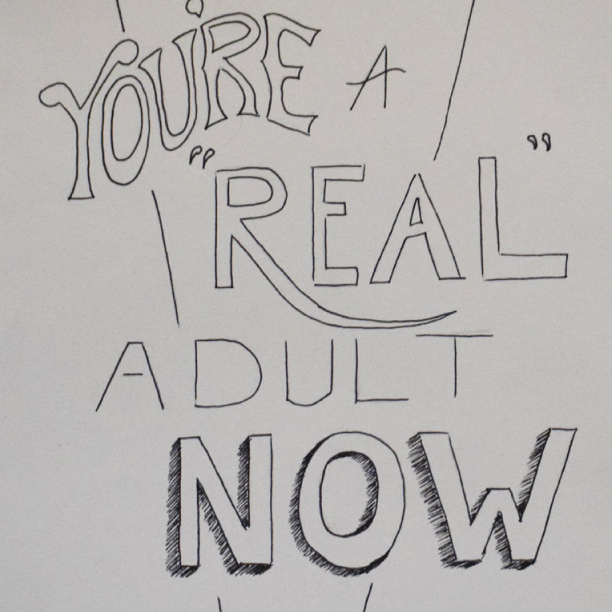 YOU'RE A
"REAL"
ADULT
NOW